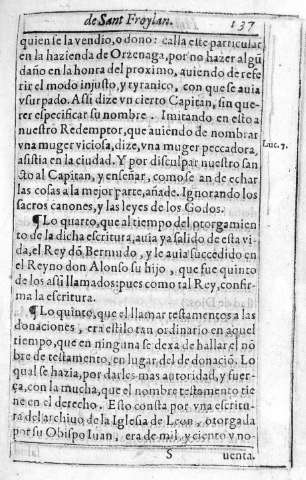 de Sant Froylan. 137
quien se la vendio, o dono: calla este particular,
en la hazienda de Orzenaga, por no hazer algũ
daño en la honra del proximo, auiendo de refe
rir el modo injusto, y tyranico, con que se auia
vsurpado. Assi dize vn cierto Capitan, sin que-
rer especificar su nombre. Imitando en esto a
nuestro Redemptor, que auiendo de nombrar
vna muger viciosa, dize, vna muger peccadora,
Luc. 7.
asistia en la ciudad. Y por disculpar nuestro san
cto al Capitan, y enseñar, como se an de echar
las cosas a la mejor parte, añade. Ignorando los
sacros canones, y las leyes de los Godos.
¶ Lo quarto, que al tiempo del otorgamien
to de la dicha escritura, auia ya salido de esta vi-
da, el Rey dõ Bermudo, y le auia succedido en
el Reyno don Alonso su hijo, que fue quinto
de los assi llamados: pues como tal Rey, confir-
ma la escritura.
¶ Lo quinto, que el llamar testamentos a las
donaciones, era estilo tan ordinario en aquel
tiempo, que en ninguna se dexa de hallar el nõ
bre de testamento, en lugar del de donaciõ. Lo
qual se hazia, por darles mas autoridad, y fuer-
ça, con la mucha, que el nombre testamento tie
ne en el derecho. Esto consta por vna escritu
ra del archiuo de la Iglesia de Leon, otorgada
por su Obispo Iuan, era de mil y ciento y no-
S uenta.